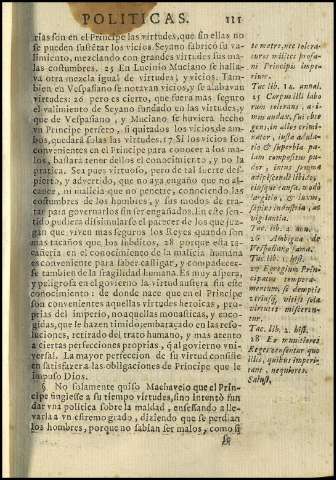 POLITICAS. 111
rias son en el Principe las virtudes, que sin ellas no
se pueden sustentar los vicios. Seyano fabricò su va-
limiento, mezclando con grandes virtudes sus ma-
las costumbres. 25 En Lucinio Muciano se halla-
va otra mezcla igual de virtudes, y vicios. Tam-
bien en Vespasiano se notavan vicios, y se alabavan
virtudes: 26 pero es cierto, que fuera mas seguro
el valimiento de Seyano fundado en las virtudes, y
que de Vespasiano, y Muciano se huviera hecho
vn Principe perfeto, si quitados los vicios de am-
bos, quedara solas las virtudes. 27 Si los vicios son
convenientes en el Principe para conocer a los ma-
los, bastará tener dellos el conocimiento, y no la
pratica. Sea pues virtuoso, pero de tal suerte des-
pierto, y advertido, que no aya engaño que no al-
cance, ni malicia que no penetre, conociendo las
costumbres de los hombres, y sus modos de tra-
tar para governarlos sin ser engañado. En este sen-
tido pudiera dissimularse el parecer de los que juz-
gan, que viven mas seguros los Reyes quando son
mas tacaños que los subditos, 28 porque esta ta-
cañeria en el conocimiento de la malicia humana
es conveniente para saber castigar, y compadecer-
se tambien de la fragilidad humana. Es muy aspera,
y peligrosa en el govierno la virtud austera sin este
conocimiento: de donde nace que en el Principe
son convenientes aquellas virtudes heroicas, pro-
prias del imperio, no aquellas monasticas, y enco-
gidas, que le hazen timido, embaraçado en las reso-
luciones, retirado del trato humano, y mas atento
a ciertas perfecciones proprias, q̃ al govierno vni-
versal. La mayor perfeccion de su virtud consiste
en satisfazer a las obligaciones de Principe que le
impuso Dios.
§ No solamente quiso Machavelo que el Prin-
cipe fingiesse a su tiempo virtudes, sino intentò fun
dar vna politica sobre la maldad, enseñando a lle-
varla a vn estremo grado, diziendo que se perdian
los hombres, porque no sabian ser malos, como si
Tac. lib. 4. annal.
25 Corpus illi labo
rum tolerans, ani-
mus audax, sui obte-
gens, in alios crimi-
nator, iuxta adula-
tio & superbia: pa-
lam compositus pu-
dor, intus summa
adipiscendi libido,
eiusque causa, modò
largitio, & luxus,
sæpius industria, ac
vigilantia.
26 Ambigua de
Vespasiano fama.
Tac. lib. 1. hist.
27 Egregium Prin-
cipatus
temperamentum, si demptis
vtriusq; vitijs solæ
virtutes misceren-
tur.
Tac. lib. 2. hist.
Salust.